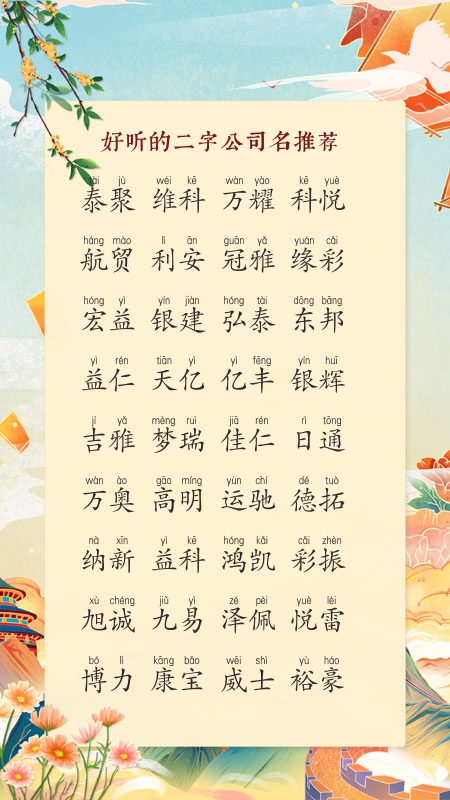 好听的二字公司名推荐
tài jù wéi kē wàn yào kē yuè
泰聚 维科 万耀 科悦
háng mào lì ān guān yǎ yuán cǎi
航贸 利安 冠雅 缘彩
hóng yì yín jiàn hóng tài dōng bāng
宏益 银建 弘泰 东邦
yì rén tiān yì yì fēng yín huī
益仁 天亿 亿丰 银辉
jí yǎ mèng ruì jiā rén rì tōng
吉雅 梦瑞 佳仁 日通
wàn ào gāo míng yùn chí dé tuò
万奥 高明 运驰 德拓
nà xīn yì kē hóng kǎi cǎi zhèn
纳新 益科 鸿凯 彩振
xù chéng jiǔ yì zé pèi yuè léi
旭诚 九易 泽佩 悦雷
bó lì kāng bǎo wēi shì yù háo
博力 康宝 威士 裕豪